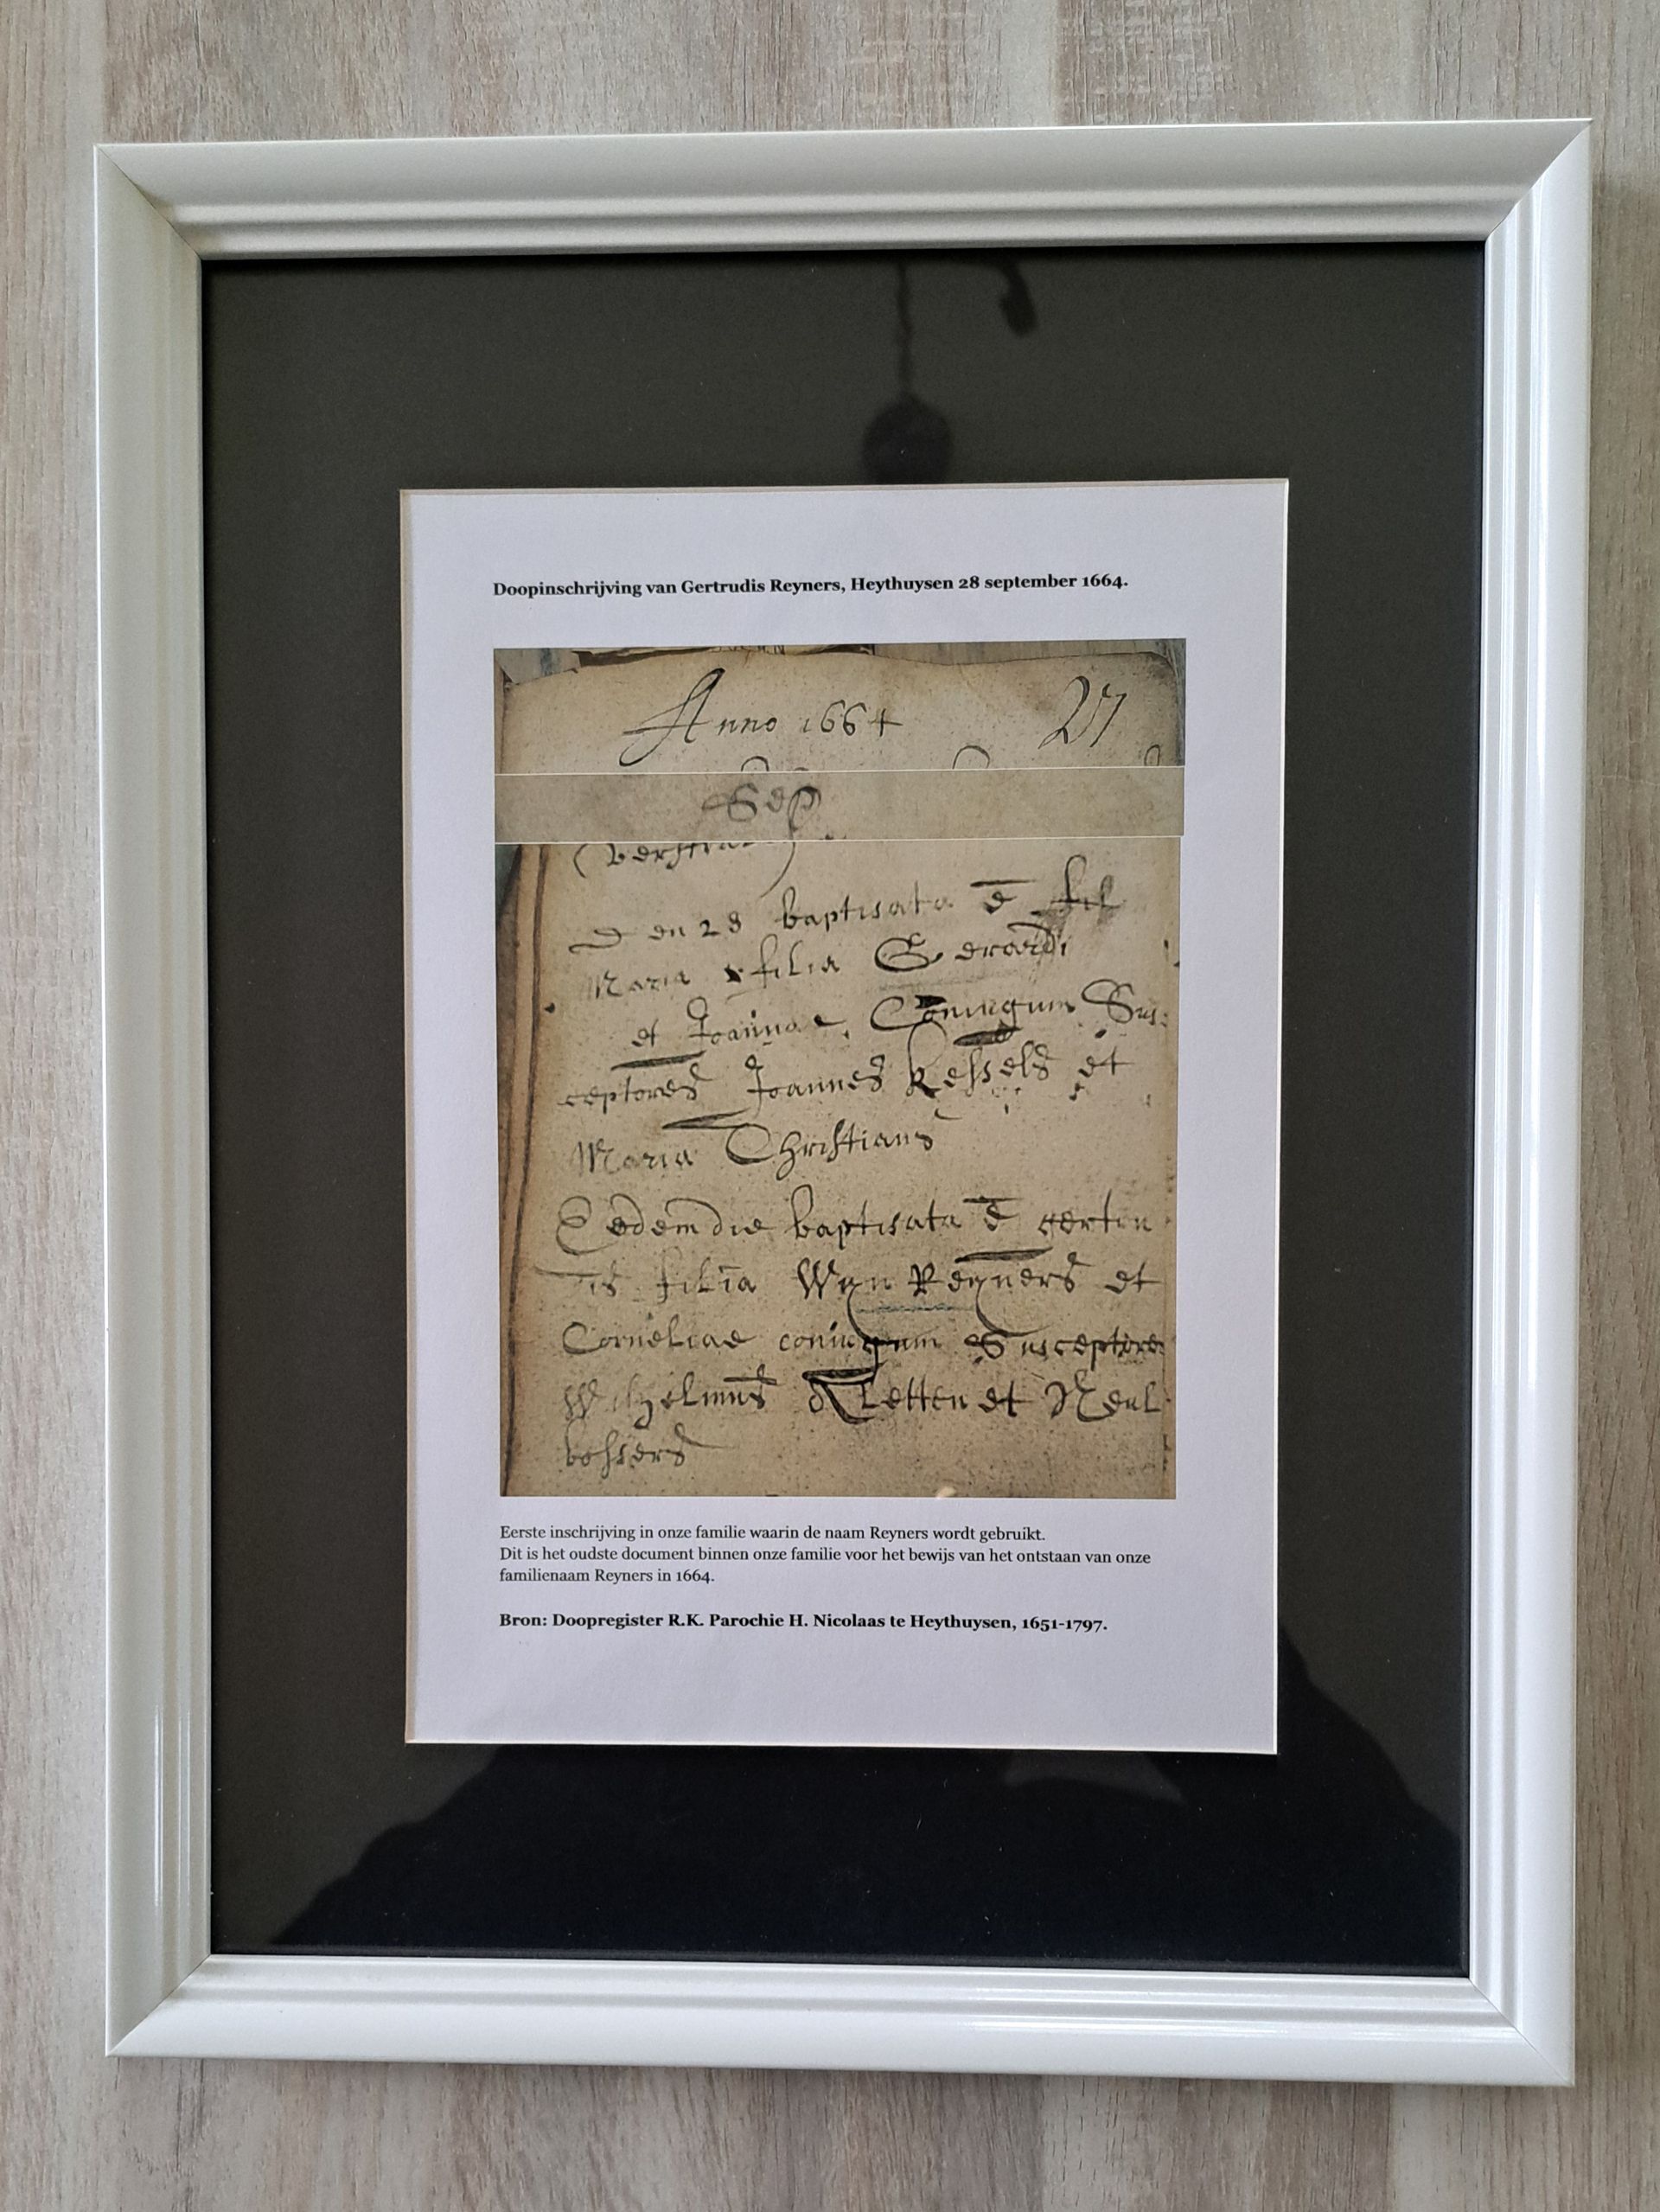 Doopinschrijving van Gertrudis Reyners, Heythuysen 28 september 1664.
Anno 1664 27
Sep
Den 28 baptisata ē fil
Maria filia Gerardi
et Joannae Coniugum Sus:
ceptores Joannes Kessels et
Maria Christians
Eodem die baptisata ē gertru
is filia Wyn Reyners et
Corneliae coniugum Susceptore
Wilhelmus Kletten et Neul
bossers
Eerste inschrijving in onze familie waarin de naam Reyners wordt gebruikt.
Dit is het oudste document binnen onze familie voor het bewijs van het ontstaan van onze
familienaam Reyners in 1664.
Bron: Doopregister R.K. Parochie H. Nicolaas te Heythuysen, 1651-1797.